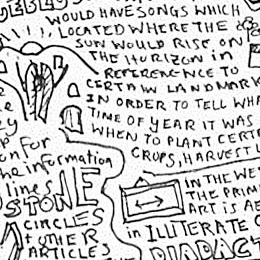 WOULD HAVE SONGS WHICH
LOCATED WHERE THE
SUN WOULD RISE, ON
THE HORIZON in
REFERENCE TO
CERTAIN LANDMARK
IN ORDER TO TELL WHA
TIME OF YEAR IT WAS
WHEN TO PLANT CERT
CROPS, HARVEST
for
the information
lines
STONE
CIRCLES
+ OTHER
ARTICLES
IN THE WE
THE PRIM
ART IS AE
in ILLITERATE C
DIDACT